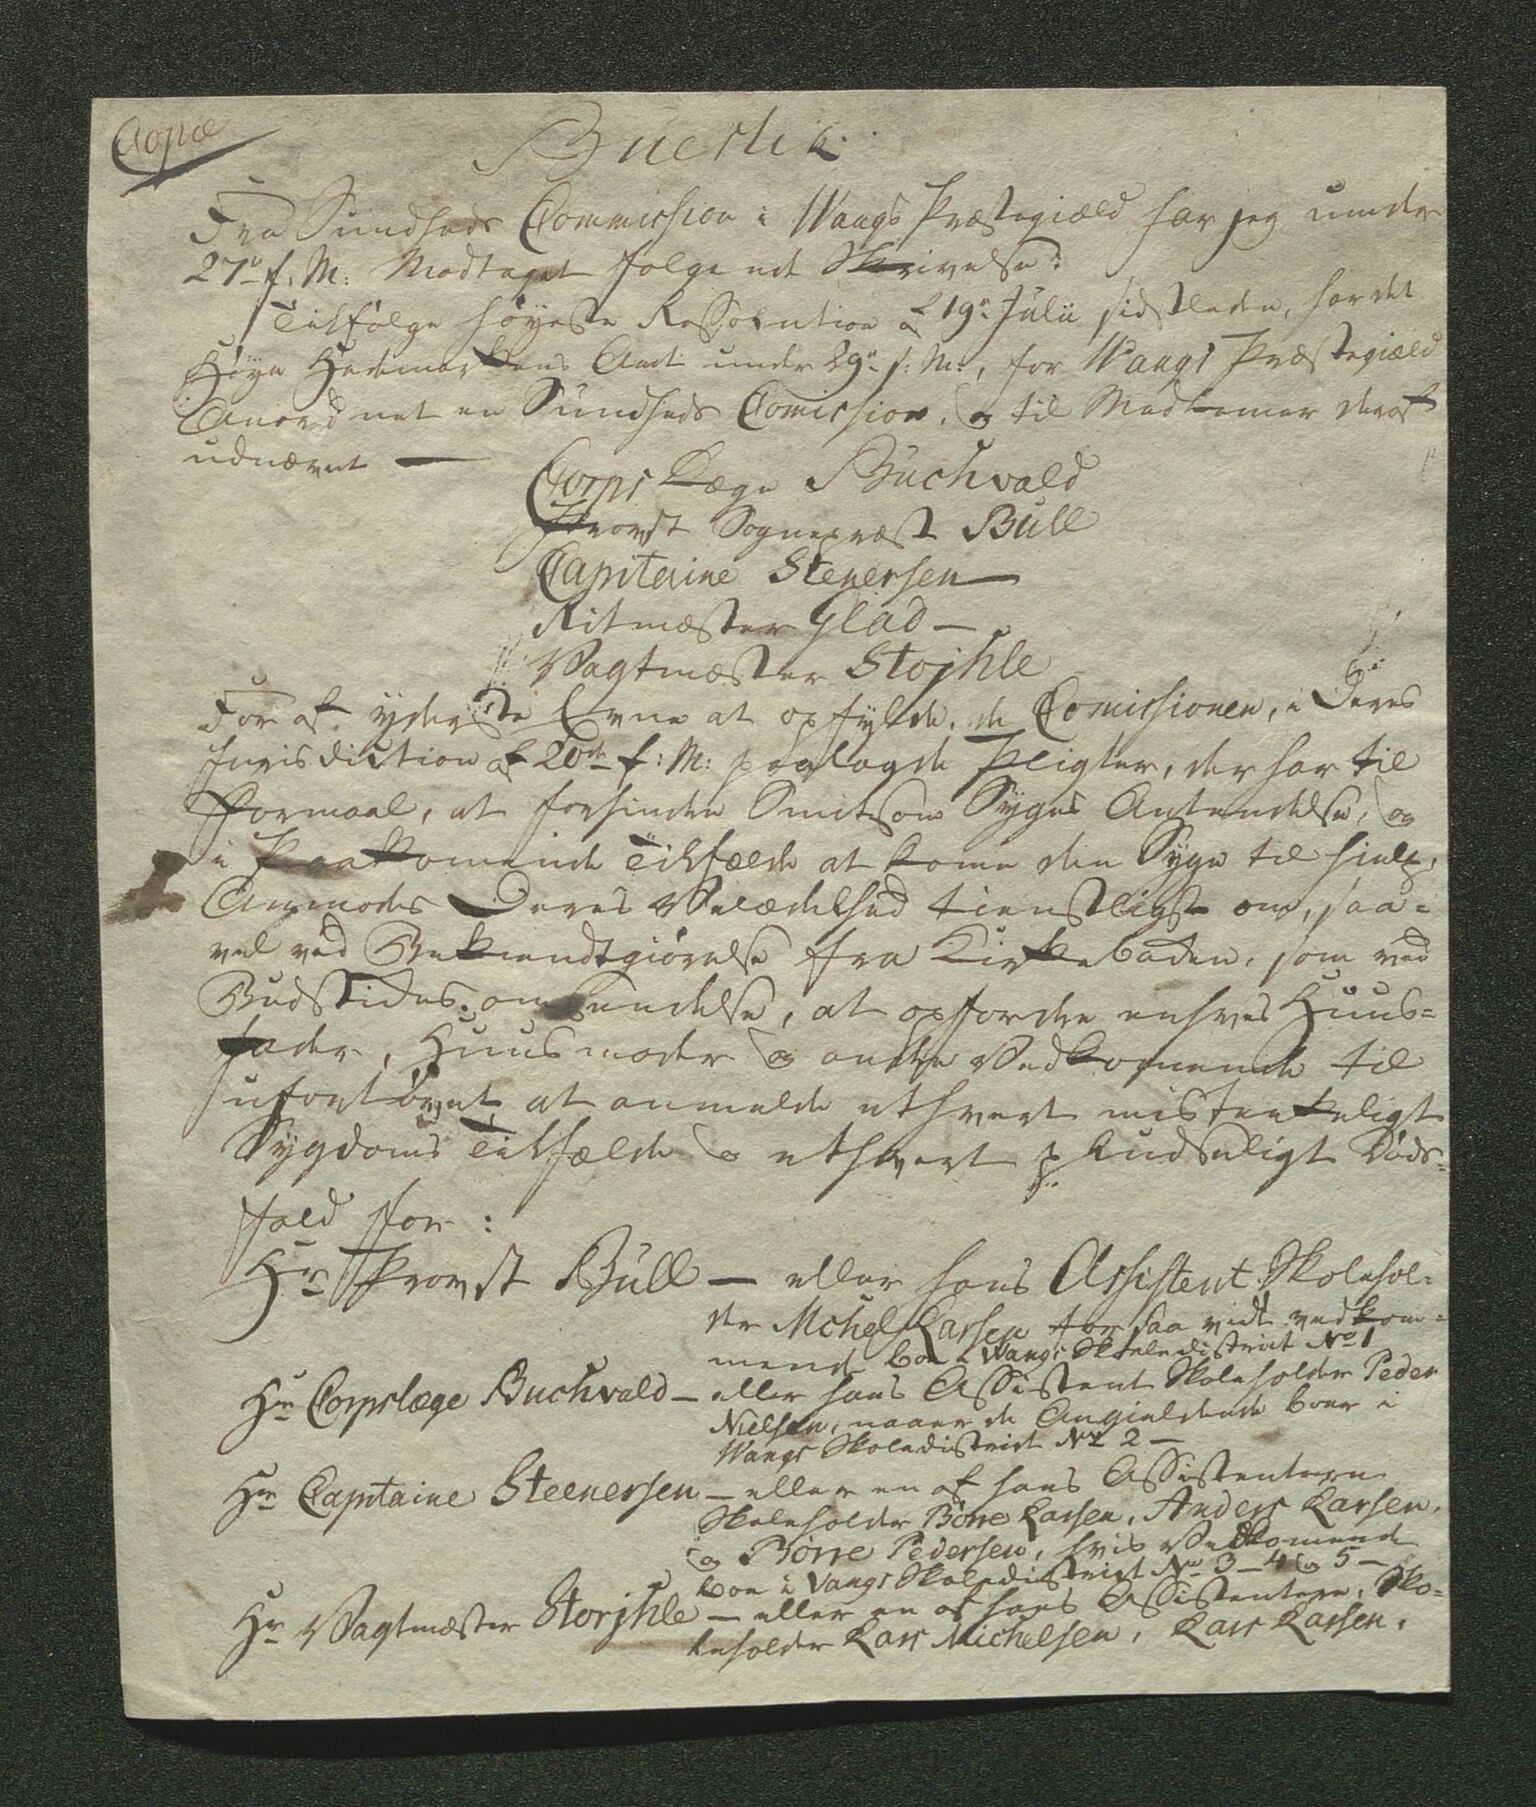 Copie
Budstik:
Fra Sundheds Commission i Wangs Præstegiæld har jeg under
27de f: M: Modtaget følgende Skrivelse:
Tilfølge høyeste Ressolution af 19de Julii sidstleden, har det
Høye Hedemarkens Amt under 29de s: M:, for Wangs Præstegiæld
Anordnet en Sundheds Comission, og til Medlemer deraf
udnævnt —
Corps Læge Buchvald
Provst Sognepræst Bull
Capitaine Stenersen —
Ritmæster Glad —
Vagtmæster Stojhle
For af yderste Evne at opfylde, de Comissionen, i Deres
Jurisdiction af 20de f: M: paalagde Pligter, der har til
Formaal, at forhindre Smitsom Syges Antændelse, og
i Paakomende Tilfælde at kome den Syge til hielp,
Anmodes Deres Velædelhed tienstligst om, saa-
vel ved Bekiendtgiørelse fra Kirkebaken, som ved
Budstikkes omsendelse, at opfordre enhver Huus-
fader, Huusmoder og andre Vedkomende til
ufortøvet at anmelde ethvert mistænkeligt
Sygdoms Tilfælde og ethvert pludseligt Døds-
fald for:
Hr Provst Bull — eller hans Assistent Skolehol-
der Mchel Larsen for saa vidt vedkom-
mende boe i Wangs Skoledistrict No 1
Hr Corpslæge Buchvald — eller hans Assistent Skoleholder Peder
Nielsen, naaer de Angieldende boer i
Wangs Skoledistrict No 2 —
Hr Capitaine Steenersen — eller en af hans Assistentere
Skoleholder Börre Larsen, Anders Larsen,
og Börre Pedersen, hvis Vedkomende
boe i Vangs Skoledistrict No 3 — 4 og 5 —
Hr Vagtmæster Storjhle — eller en af hans Assistentere, Sko-
leholder Lars Michelsen, Lars Larsen,